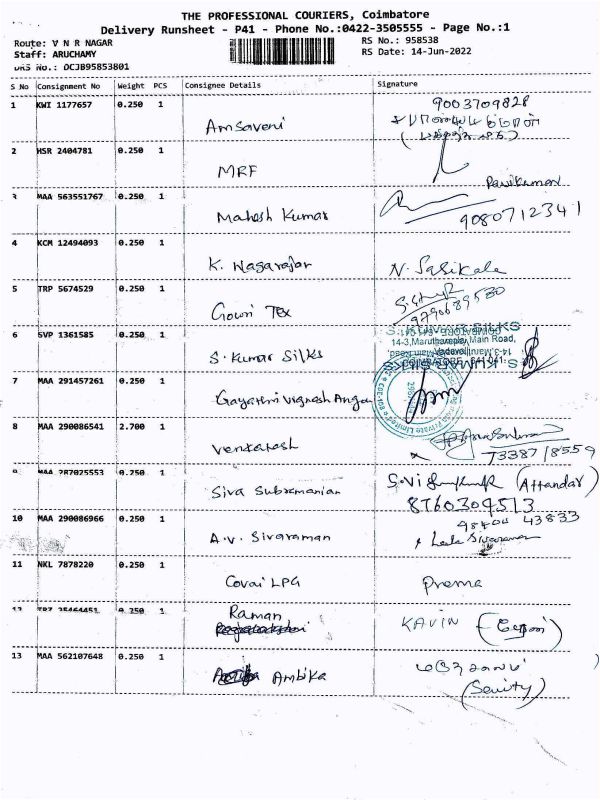 THE PROFESSIONAL COURIERS, Coimbatore
Delivery Runsheet - P41 - Phone No.:0422-3505555 - Page No.:1
Route: V N R NAGAR
RS No.: 958538
Staff: ARUCHAMY
RS Date: 14-Jun-2022
DRS No.: OCJB95853801
S No Consignment No Weight PCS Consignee Details Signature
1 KWI 1177657 0.250 1 Amsaveni 9003709828
2 HSR 2404781 0.250 1 MRF
3 MAA 563551767 0.250 1 Mahesh Kumar 9080712341
4 KCM 12494093 0.250 1 K. Nagarajan N. Sasikala
5 TRP 5674529 0.250 1 Gowri Tex 9790689580
6 SVP 1361585 0.250 1 S. Kumar Silks
S. KUMAR SILKS
14-3, Maruthamalai Main Road,
7 MAA 291457261 0.250 1 Gayathri Vignesh
8 MAA 290086541 2.700 1 Venkatesh
73387/8559
9 MAA 287025553 0.250 1 Siva Subramanian (Attandar)
8760309513
10 MAA 290086966 0.250 1 A.V. Sivaraman 43833
Leela Sivaraman
11 NKL 7878220 0.250 1 Covai LPG Prema
12 TRZ 35464451 0.250 1 Raman KAVIN
13 MAA 562107648 0.250 1 Ambika
(Seuity)